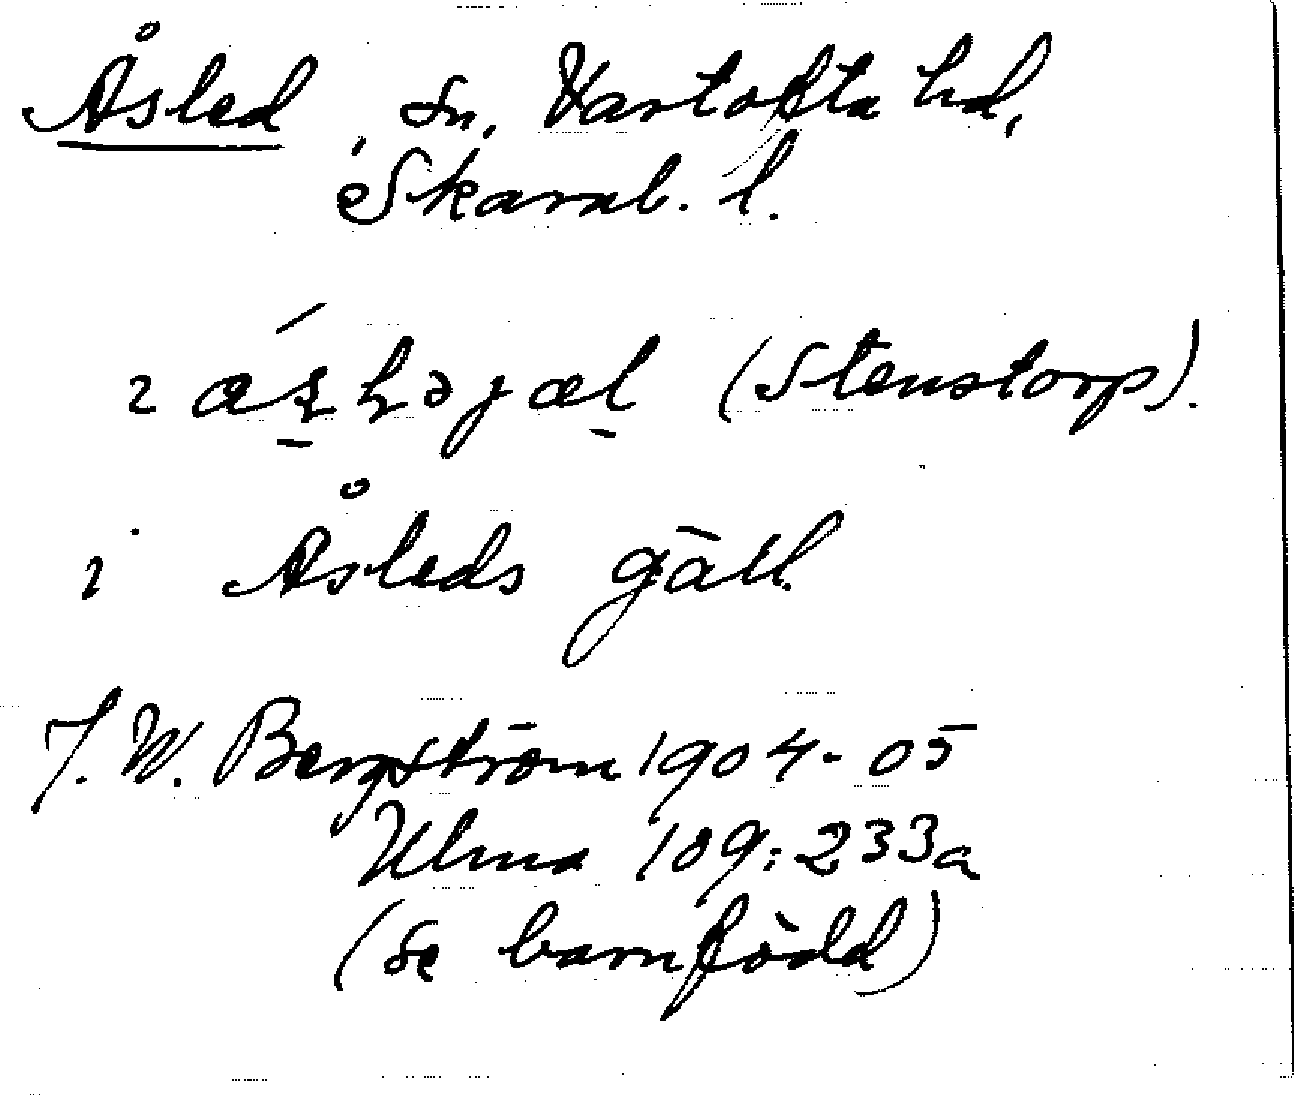 Åsled, sn, Vartofta hd,
Skarab. l.
(Stenstorp).
i Åsleds gäll
J. W. Bergström 1904-05
Ulma 109:233a
(se barnfödd)